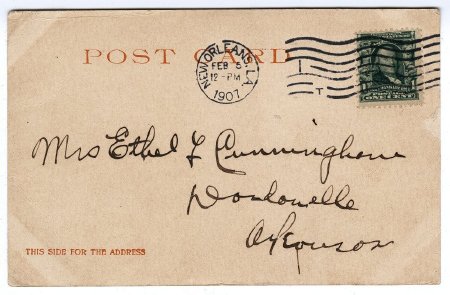 POST CARD
NEW ORLEANS, LA.
FEB 5
12-PM
1907
T
ONE CENT
Mrs Ethel L Cunningham
Dardanelle
Arkansas
THIS SIDE FOR THE ADDRESS